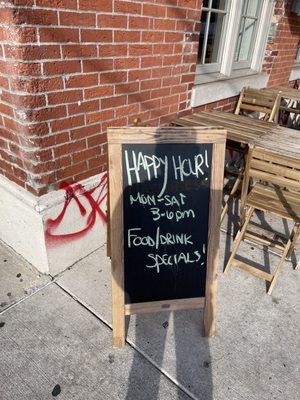 HAPPY HOUR!
MON-SAT
3-6pm
FOOD/DRINK
SPECIALS!